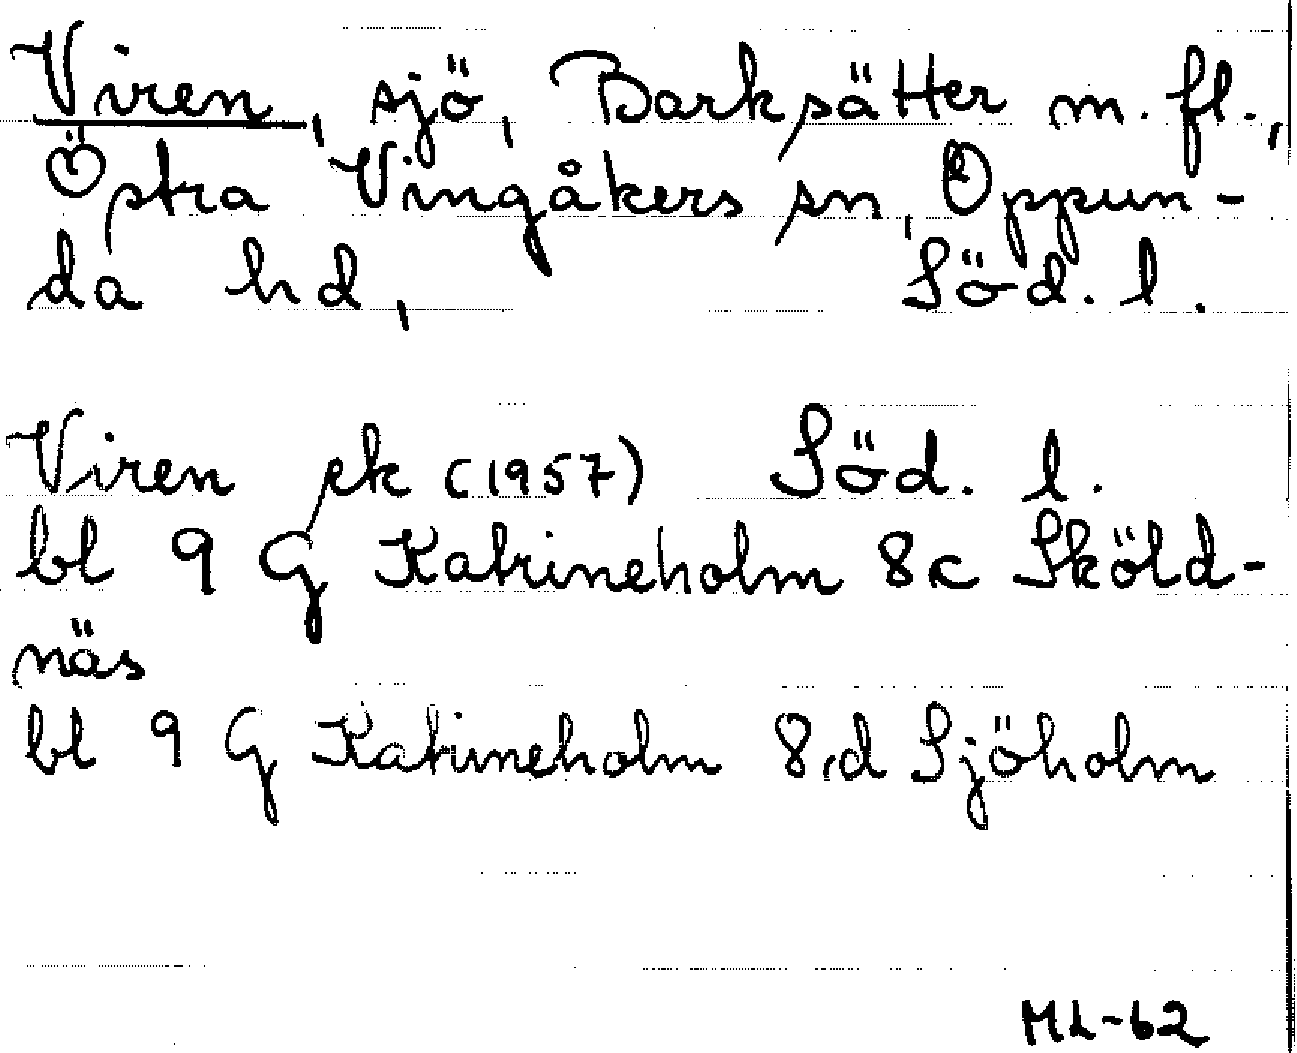 Viren, sjö, Barksätter m. fl.,
Östra Vingåkers sn, Oppun-
da hd, Söd. l.
Viren ek (1957) Söd. l.
bl 9 G Katrineholm 8c Sköld-
näs
bl 9 G Katrineholm 8d Sjöholm
ML-62